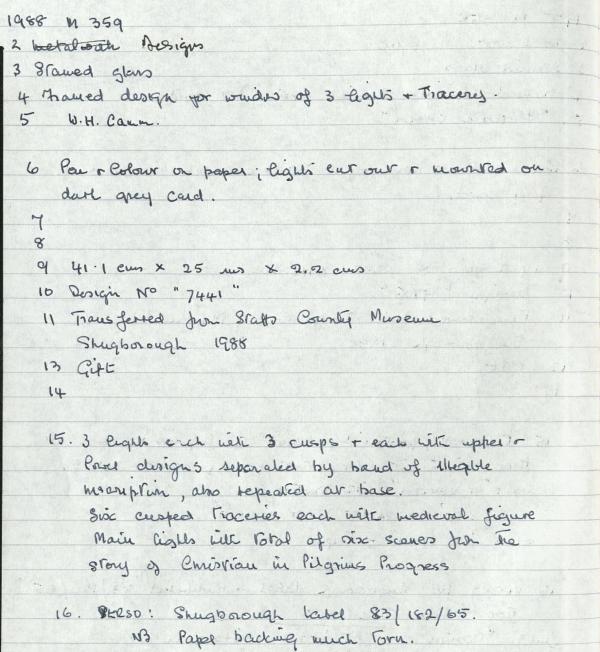 1988 M 359
2 Metalwork Designs
3 Stained glass
4 Framed design for window of 3 lights + Traceries.
5 W.H. Camm.
6 Pen + Colour on paper; lights cut out + mounted on
dark grey card.
7
8
9 41.1 cms x 25 ms x 2.2 cms
10 Design No "7441"
11 Transferred from Staffs County Museum
Shugborough 1988
13 Gift
14
15. 3 lights each with 3 cusps + each with upper +
lower designs separated by band of illegible
inscription, also repeated at base.
Six cusped Traceries each with medieval figure
Main lights with total of six scenes from the
story of Christian in Pilgrims Progress
16. VERSO: Shugborough Label 83/182/65.
NB Paper backing much torn.